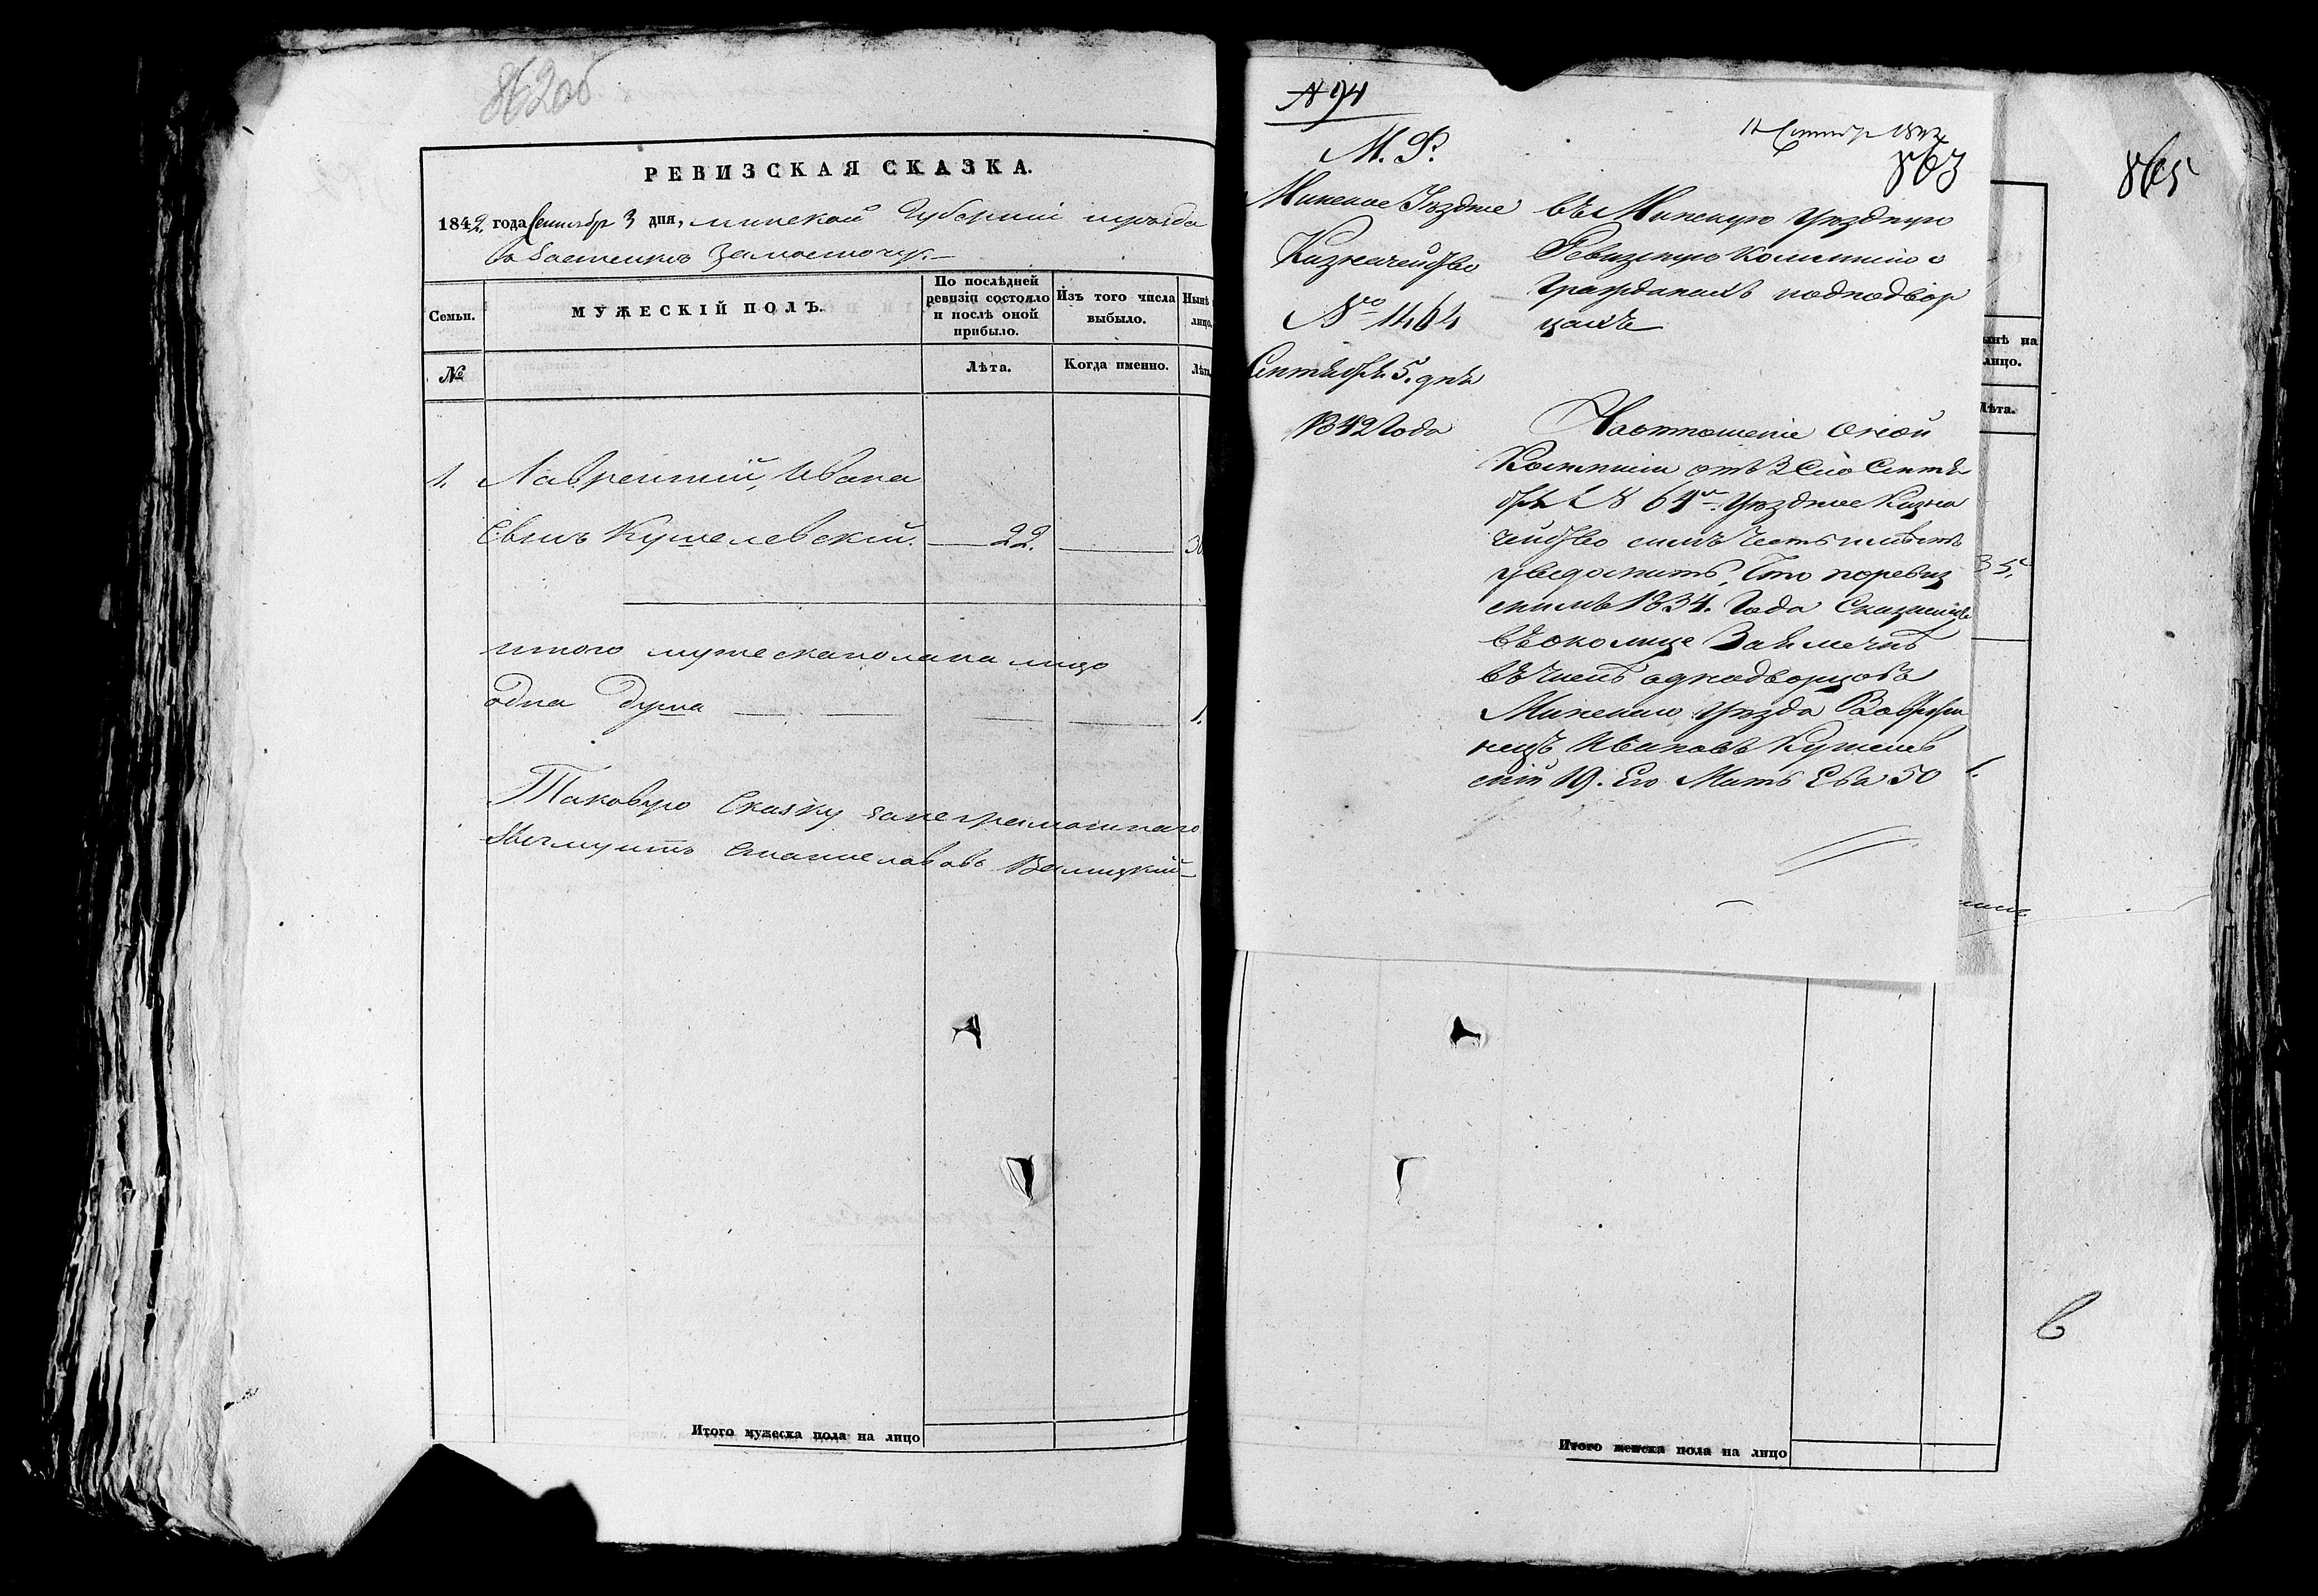 862об
РЕВИЗСКАЯ СКАЗКА.
1842 года Сентябр 3 дня, минской Губерніи и уѣзда
застенкъ Замосточу.
Семьи.
МУЖЕСКІЙ ПОЛЪ.
По послѣдней ревизіи состояло и послѣ оной прибыло.
Изъ того числа выбыло.
Нынѣ лицо.
№
Лѣта.
Когда именно.
Лѣта
1. Лаврентій, Ивана
Сынъ Кушелевскій. 22. 30
итого мужеска пола на лицо
одна душа 1.
Таковую Сказку за неграмотнаго
Станиславовъ Валицкій
Итого мужеска пола на лицо
№ 94
М. Ф.
Минское Уѣздное
Казначейство
№ 1464
Сентября 5. дня
1842 Года
11 Сентябр 1842
863
865
Въ Минскую Уѣздную
Ревизскую Комиссію о
Гражданахъ и однодвор
цахъ
На отношеніе Оной
Коммисіи отъ 3 Сего Сентя
бря № 64 Уѣздное Казна
чейство симъ Честь имѣетъ
увѣдомить, Что по ревиз
скимъ 1834. Года Сказкамъ
въ околице
въ числѣ однодворцовъ
Минскаго Уѣзда Вавржи
нецъ Ивановъ Кушелев
скій 19. Его Мать Ева 50
ынѣ на лицо.
Лѣта.
35.
1.
Итого женска пола на лицо